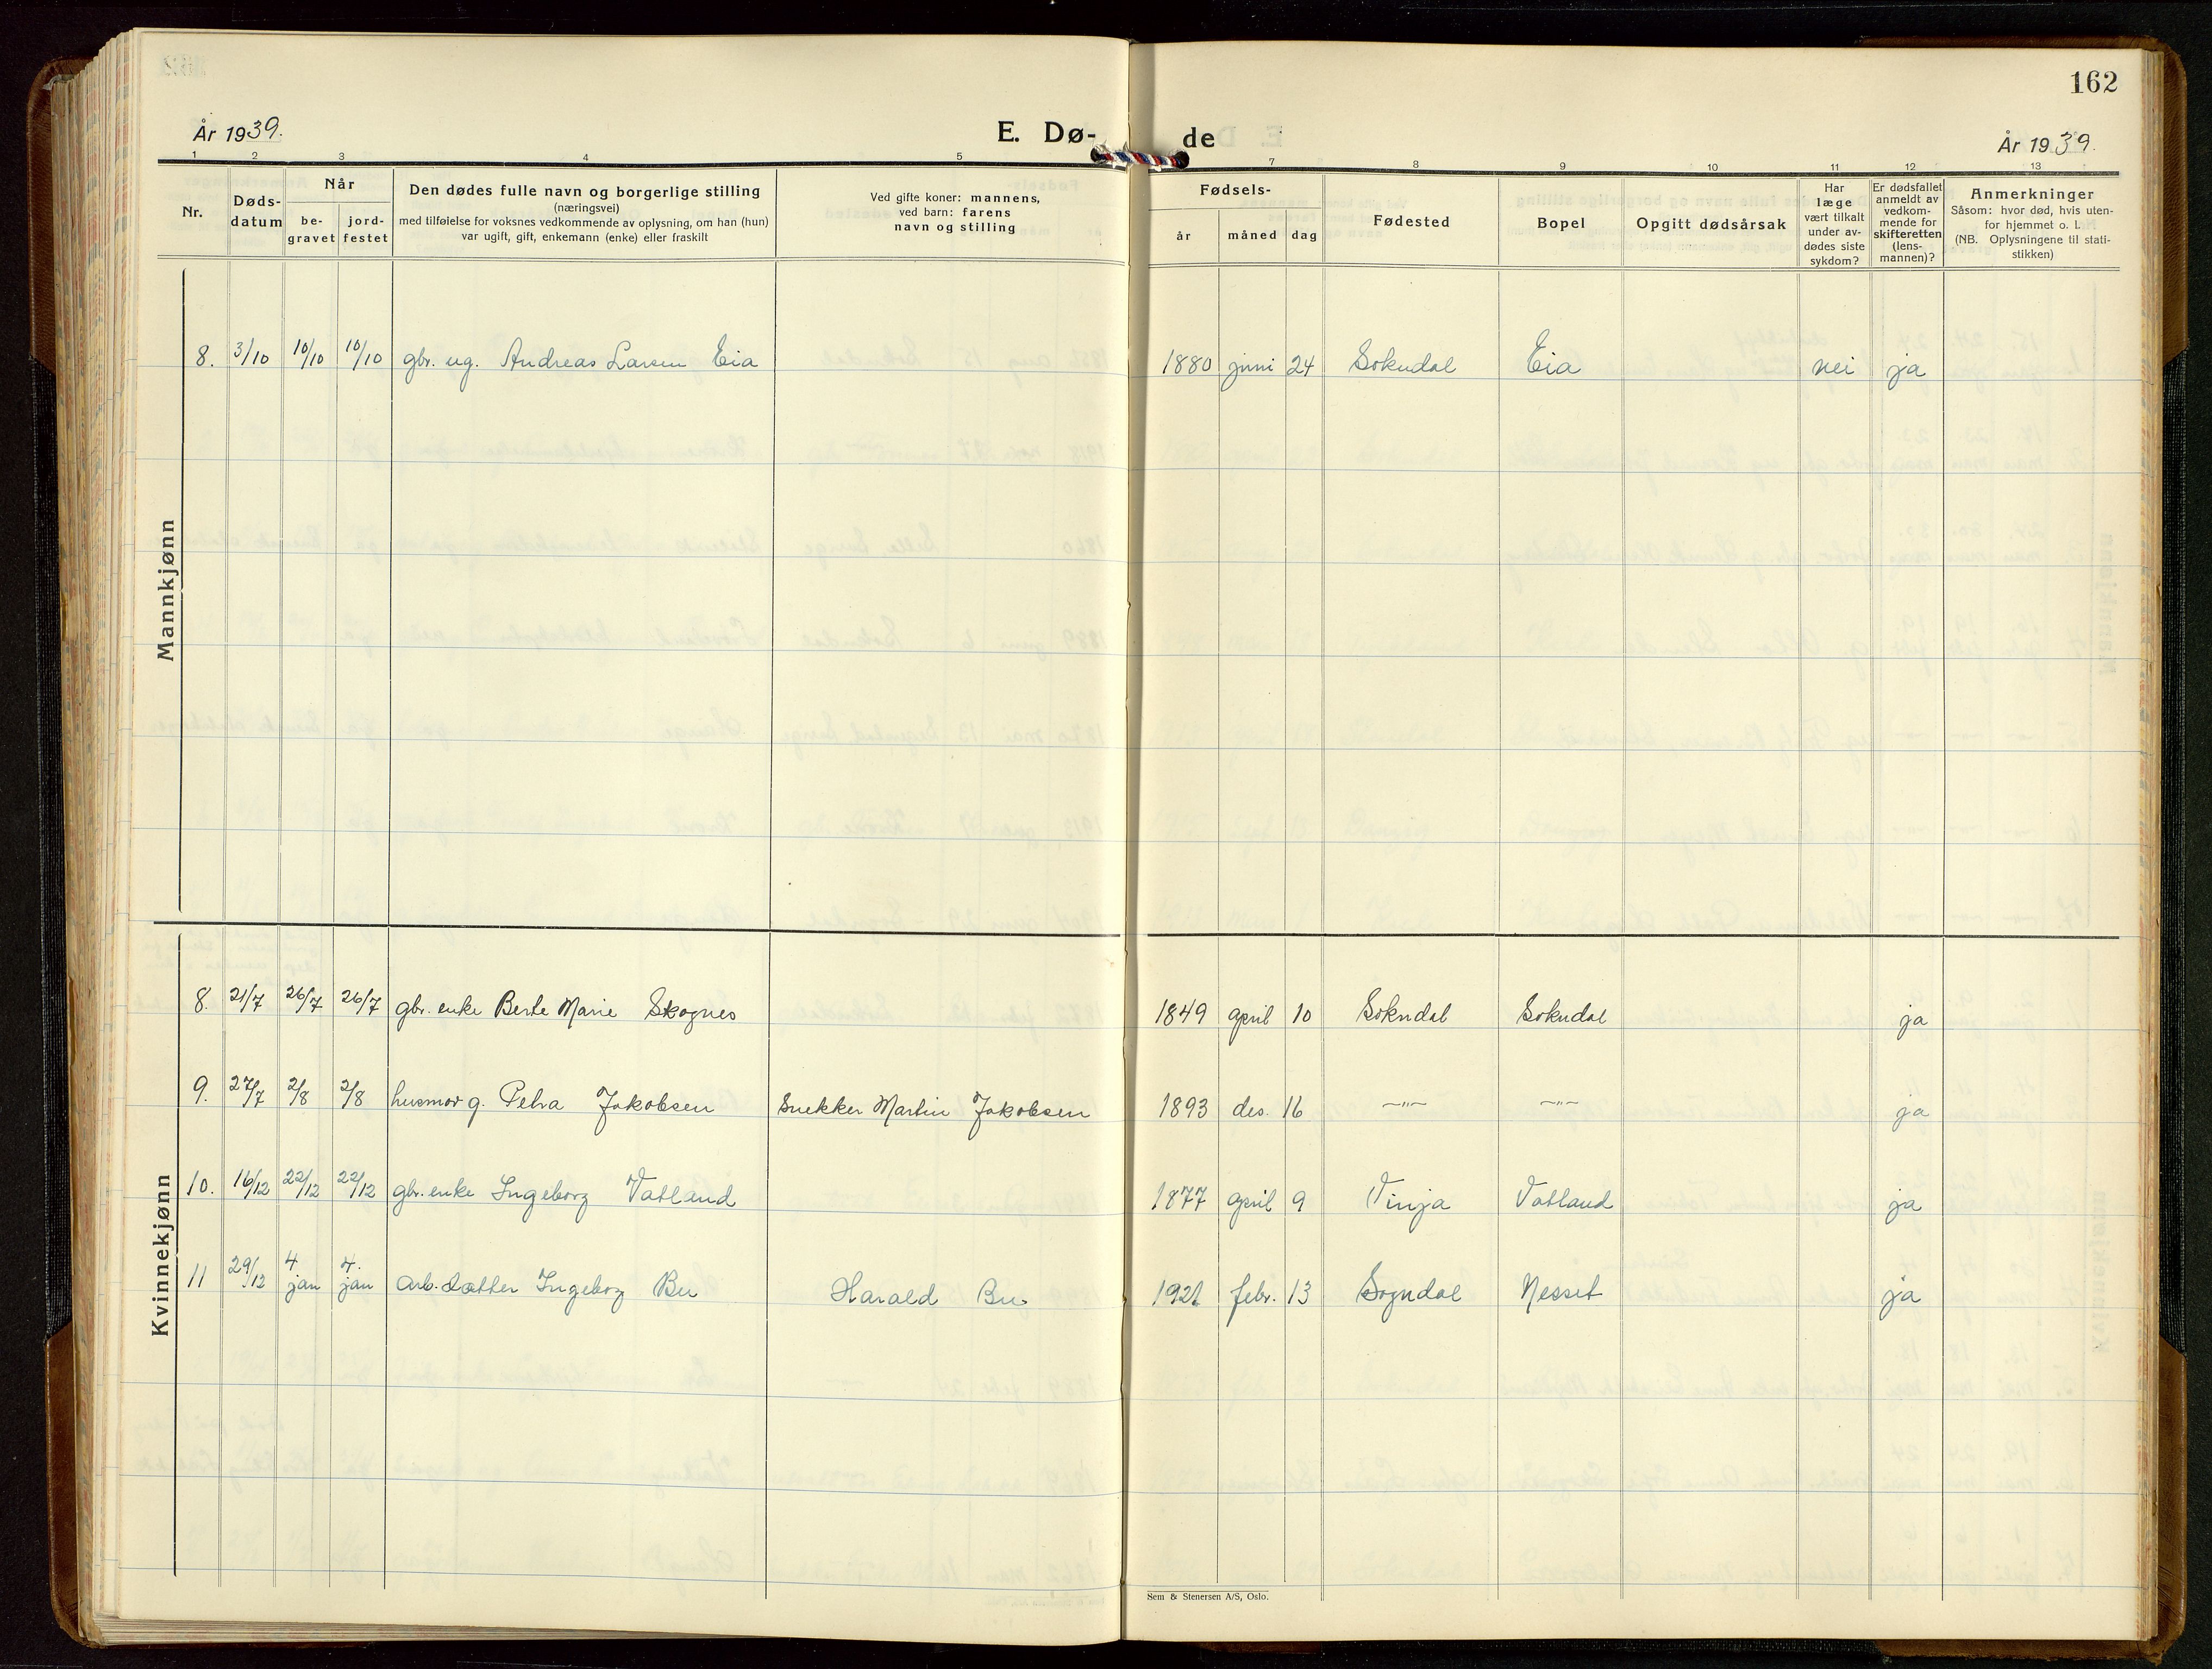 162
År 1939.
E. Dø- de
År 1939.
1 2 3 4 5 7 8 9 10 11 12 13
Nr.
Døds-
datum
Når
be-
gravet
jord-
festet
Den dødes fulle navn og borgerlige stilling
(næringsvei)
med tilføielse for voksnes vedkommende av oplysning, om han (hun)
var ugift, gift, enkemann (enke) eller fraskilt
Ved gifte koner: mannens,
ved barn: farens
navn og stilling
Fødsels-
år
måned
dag
Fødested
Bopel
Opgitt dødsårsak
Har
læge
vært tilkalt
under av-
dødes siste
sykdom?
Er dødsfallet
anmeldt av
vedkom-
mende for
skifteretten
(lens-
mannen)?
Anmerkninger
Såsom: hvor død, hvis uten-
for hjemmet o. l.
(NB. Oplysningene til stati-
stikken)
Mannkjønn
8. 3/10 10/10 10/10 gbr. ug. Andreas Larsen Eia 1880 juni 24 Sokndal Eia nei ja
Kvinnekjønn
8. 21/7 26/7 26/7 gbr. enke Berte Marie Skognes 1849 april 10 Sokndal Sokndal ja
9. 27/7 2/8 2/8 husmor g. Petra Jakobsen Snekker Martin Jakobsen 1893 des. 16 —"— —"— ja
10. 16/12 22/12 22/12 gbr. enke Ingeborg Vatland 1877 april 9 Tinja Vatland ja
11 29/12 4 jan 4. jan arb. datter Ingeborg Bu Harald Bu 1921 febr. 13 Sogndal Nesset ja
Sem & Stenersen A/S, Oslo.